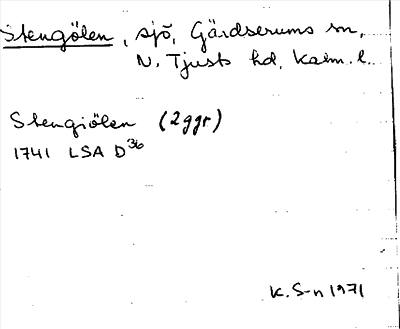 Stengölen, sjö, Gärdserums sn,
N. Tjusts hd, Kalm. l.
Stengiölen (2ggr)
1741 LSA D36
K. S-n 1971